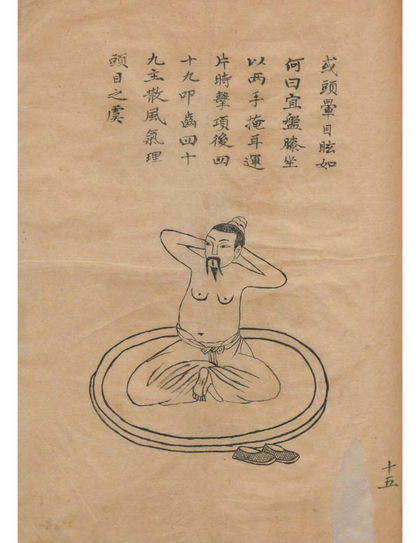 或頭暈目眩如
何曰宜盤膝坐
以兩手掩耳運
片時擊項後四
十九叩齒四十
九主散風氣理
頭目之虞
十五